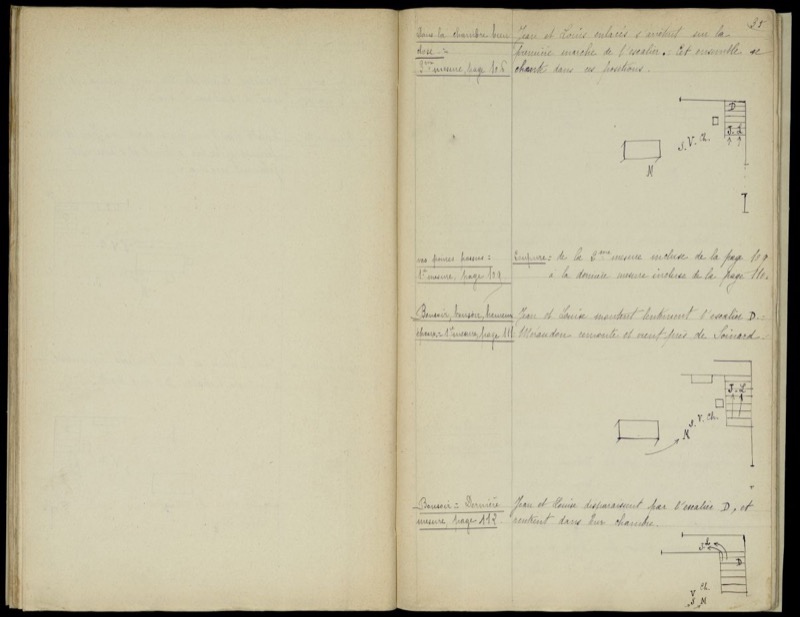 25
Dans la chambre bien
close =
3me mesure, page 106
Jean et Louise enlacés s'arrêtent sur la
première marche de l'escalier. Cet ensemble se
chante dans ces positions.
D
J. L
S. V. Ch.
M
vos peines passées :
1re mesure, page 109
Coupure : de la 2ème mesure incluse de la page 109
à la dernière mesure incluse de la page 110.
Bonsoir, bonsoir, heureux
époux, 1re mesure, page 111
Jean et Louise montent lentement l'escalier D. -
Mirandon remonte et vient près de Soinard. -
J. L
S. V. Ch.
M
Bonsoir = Dernière
mesure, page 112
Jean et Louise disparaissent par l'escalier D, et
rentrent dans leur chambre.
J. L
D
V Ch.
S M